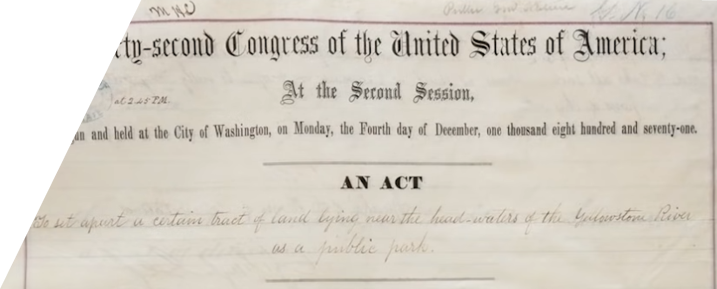 ty-second Congress of the United States of America;
at 2.45 P.M.
At the Second Session,
and held at the City of Washington, on Monday, the Fourth day of December, one thousand eight hundred and seventy-one.
AN ACT
To set apart a certain tract of land lying near the head-waters of the Yellowstone River
as a public park.